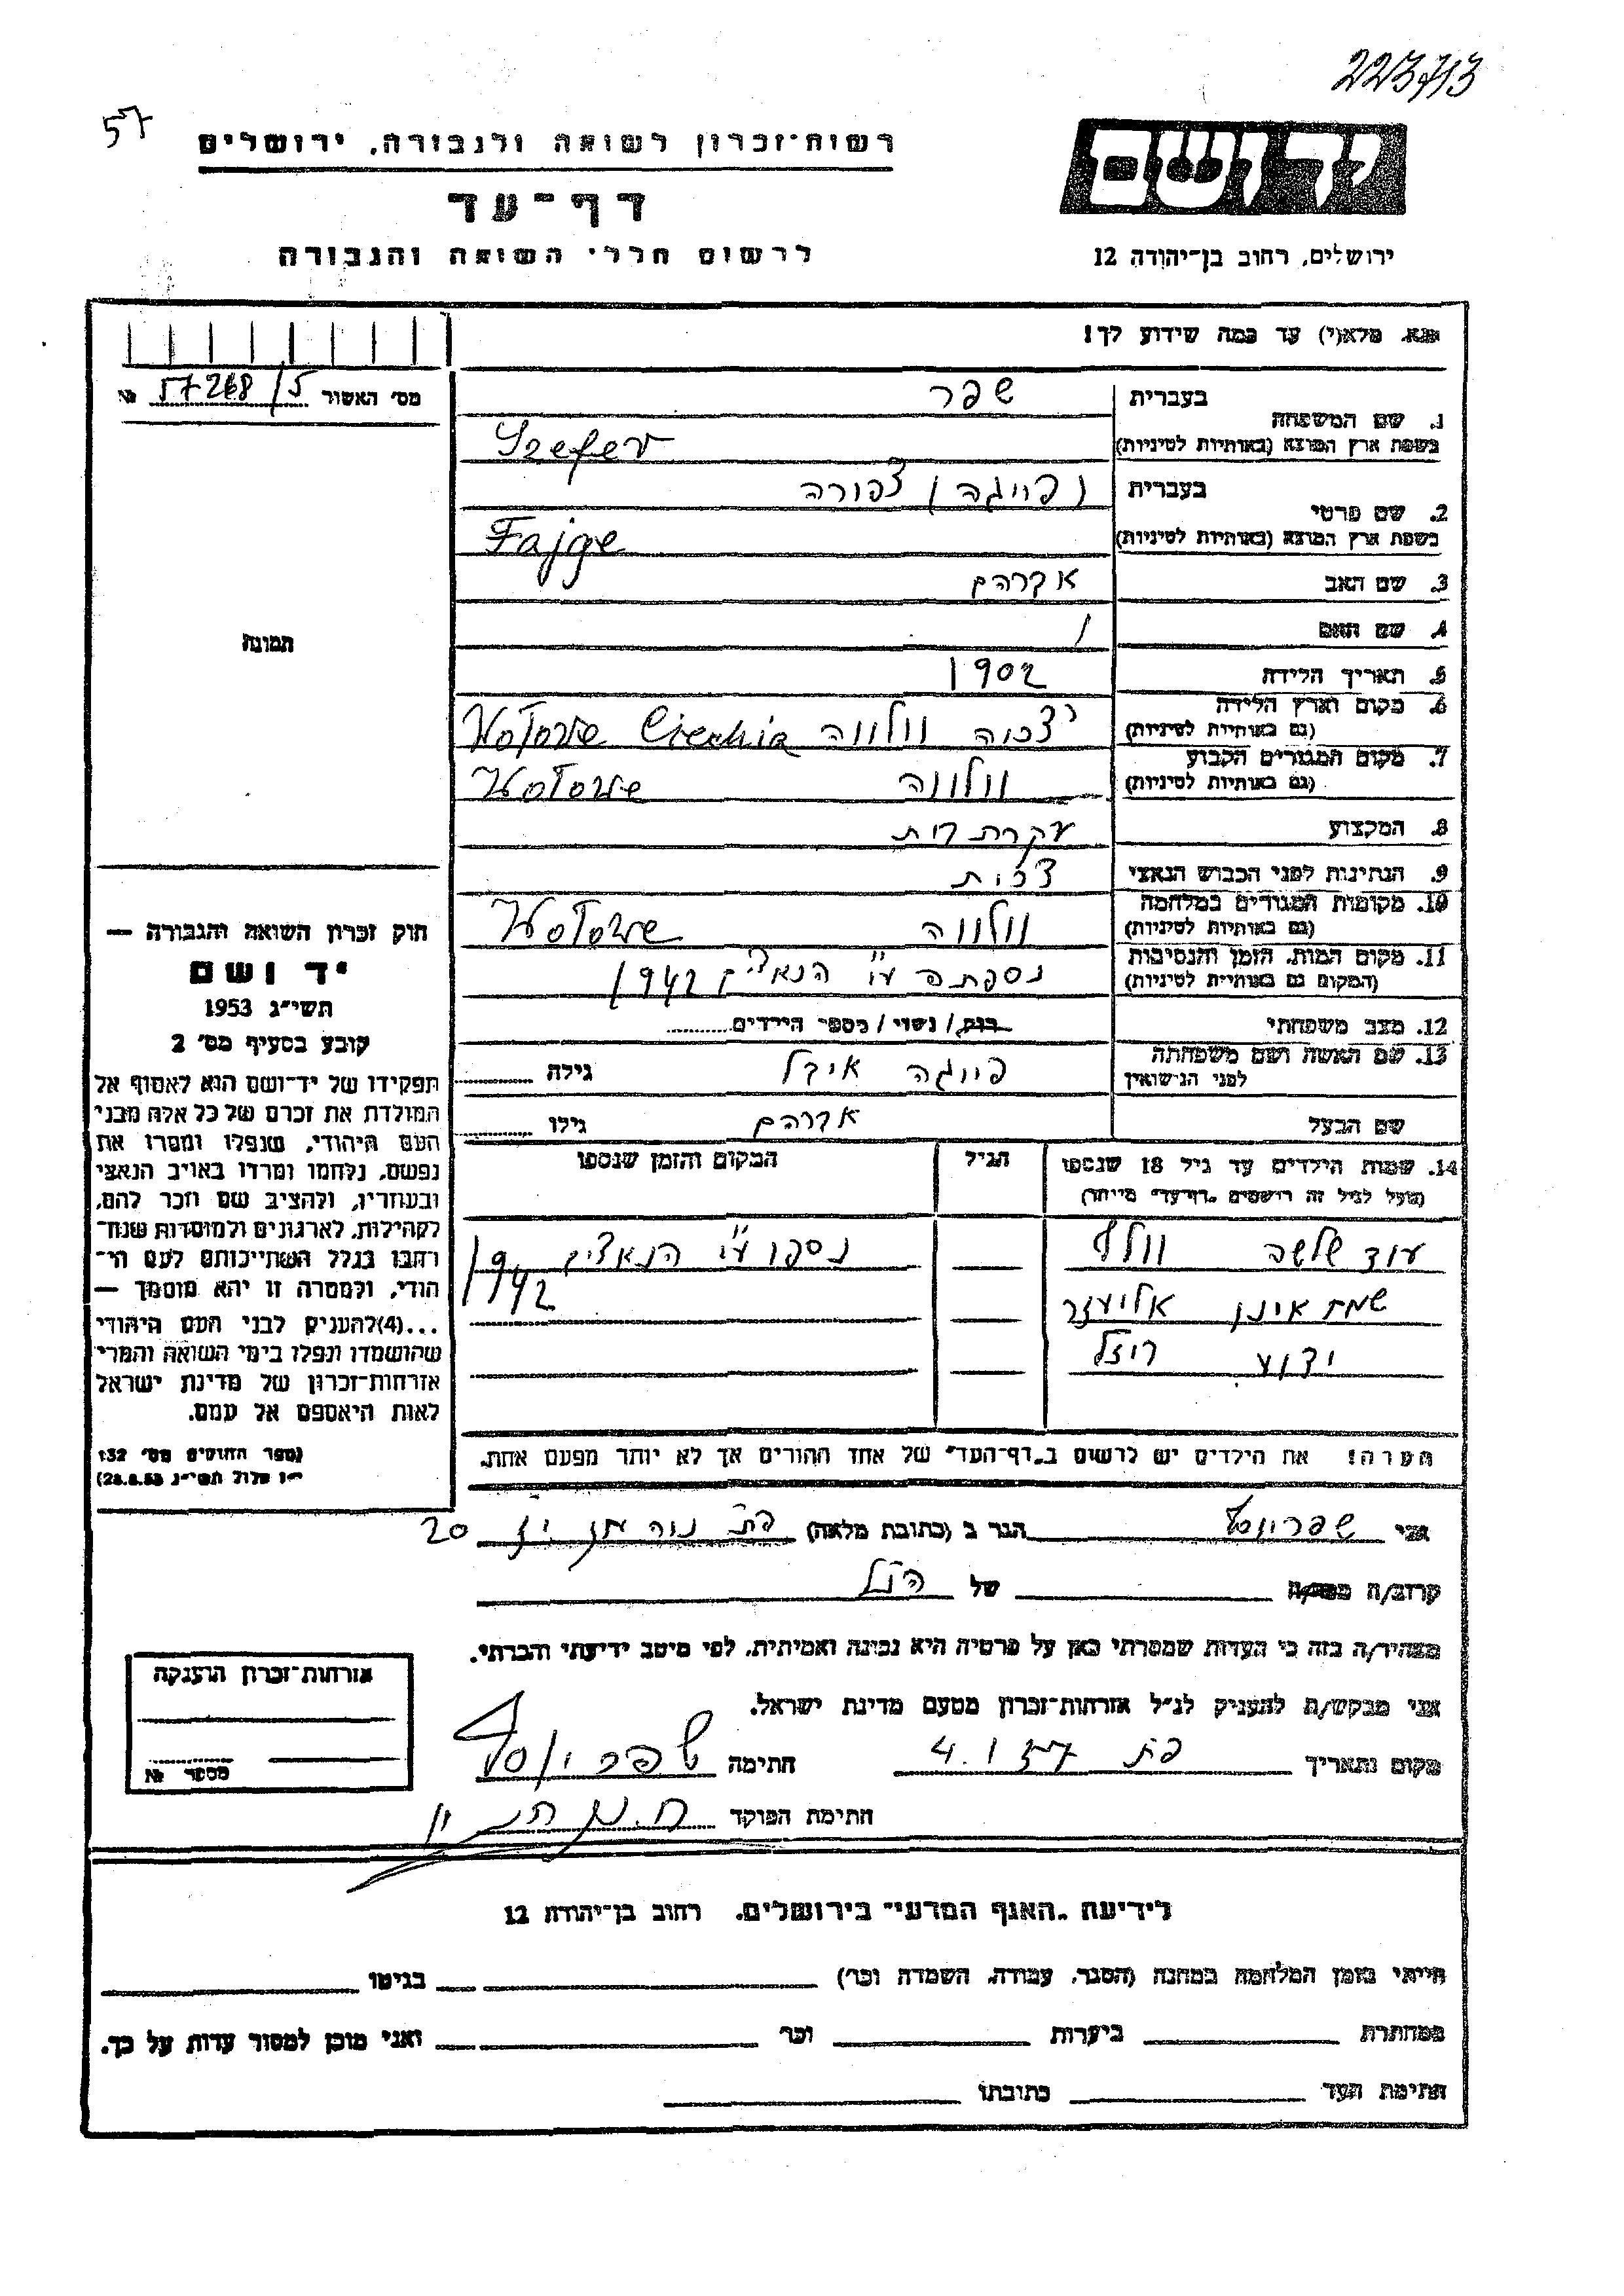 223713
57
רשות־זכרון לשואה ולגבורה, ירושלים
יד ושם
דף־עד
לרשום חללי השואה והגבורה
ירושלים, רחוב בן־יהודה 12
נא מלא(י) עד כמה שידוע לך!
מס׳ האשור 57268/5 №
בעברית שפר
1. שם המשפחה
בשפת ארץ המוצא (באותיות לטיניות) Szefer
בעברית (פייגה) צפורה
2. שם פרטי
בשפת ארץ המוצא (באותיות לטיניות) Fajge
3. שם האב אברהם
4. שם האם /
תמונה
5. תאריך הלידה 1902
6. מקום וארץ הלידה צכיה וולווה Wolowe Czechia
(גם באותיות לטיניות)
7. מקום המגורים הקבוע וולווה Wolowe
(גם באותיות לטיניות)
8. המקצוע עקרת בית
9. הנתינות לפני הכבוש הנאצי צכית
10. מקומות המגורים במלחמה וולווה Wolowe
(גם באותיות לטיניות)
11. מקום המות, הזמן והנסיבות נספתה ע״י הנאצים 1942
(המקום גם באותיות לטיניות)
12. מצב משפחתי רווק/נשוי/מספר הילדים
13. שם האשה ושם משפחתה פייגה אייזל גילה
לפני הנישואין
שם הבעל אברהם גילו
14. שמות הילדים עד גיל 18 שנספו הגיל המקום והזמן שנספו
(מעל לגיל זה רושמים „דף־עד״ מיוחד)
עוד שלשה וולף נספו ע״י הנאצים 1942
שמם אינן אליעזר
ידוע רוזל
הערה! את הילדים יש לרשום ב„דף־העד״ של אחד ההורים אך לא יותר מפעם אחת.
חוק זכרון השואה והגבורה —
יד ושם
תשי״ג 1953
קובע בסעיף מס׳ 2
תפקידו של יד־ושם הוא לאסוף אל
המולדת את זכרם של כל אלה מבני
העם היהודי, שנפלו ומסרו את
נפשם, נלחמו ומרדו באויב הנאצי
ובעוזריו, ולהציב שם וזכר להם,
לקהילות, לארגונים ולמוסדות שנח־
רבו בגלל השתייכותם לעם הי־
הודי, ולמטרה זו יהא מוסמך —
...(4)להעניק לבני העם היהודי
שהושמדו ונפלו בימי השואה והמרי
אזרחות־זכרון של מדינת ישראל
לאות היאספם אל עמם.
(ספר החוקים מס׳ 132
י״ז אלול תשי״ג 28.8.53)
אני שפר יוסף הגר ב (כתובת מלאה) 20
קרוב/ה של הנ״ל
מצהיר/ה בזה כי העדות שמסרתי כאן על פרטיה היא נכונה ואמיתית, לפי מיטב ידיעתי והכרתי.
אני מבקש/ת להעניק לנ״ל אזרחות־זכרון מטעם מדינת ישראל.
מקום ותאריך חתימה שפר יוסף
חתימת הפוקד
אזרחות־זכרון הוענקה
מספר №
לידיעת „האגף המדעי״ בירושלים, רחוב בן־יהודה 12
הייתי בזמן המלחמה במחנה (הסגר, עבודה, השמדה וכו׳) בגיטו
במחתרת ביערות וכו׳ ואני מוכן למסור עדות על כך.
חתימת העד כתובתו